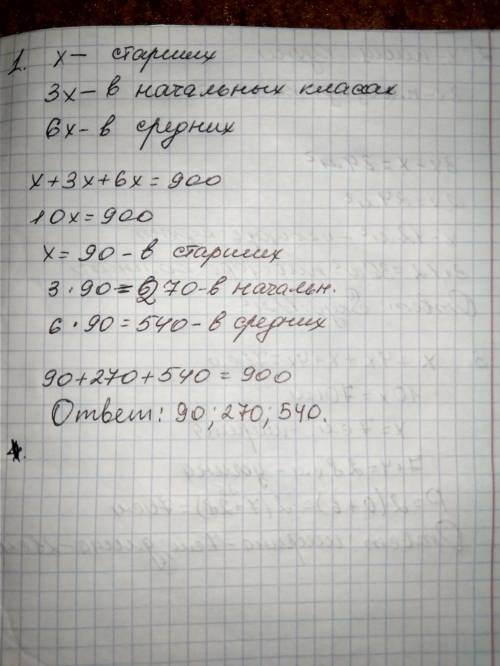 1. x – старших
3x – в начальных класах
6x – в средних
x+3x+6x=900
10x=900
x=90 – в старших
3·90=270 – в начальн.
6·90=540 – в средних
90+270+540=900
Ответ: 90; 270; 540.